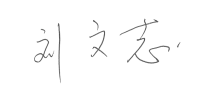 刘文志